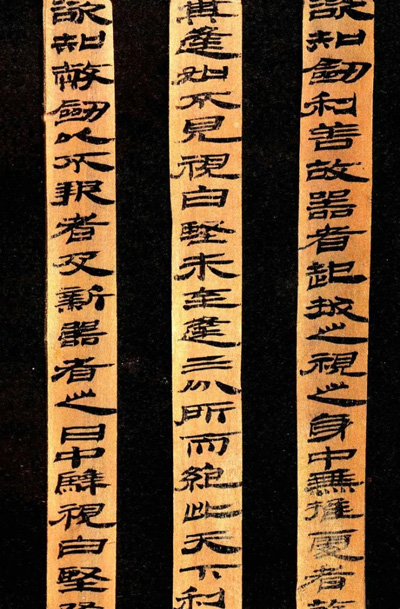 欲知劍利善故器者起拔之視之身中無推處者
其逢如不見視白堅未至逢三分所而絕此天下利
欲知幣劍以不報者及新器者之日中騂視白堅